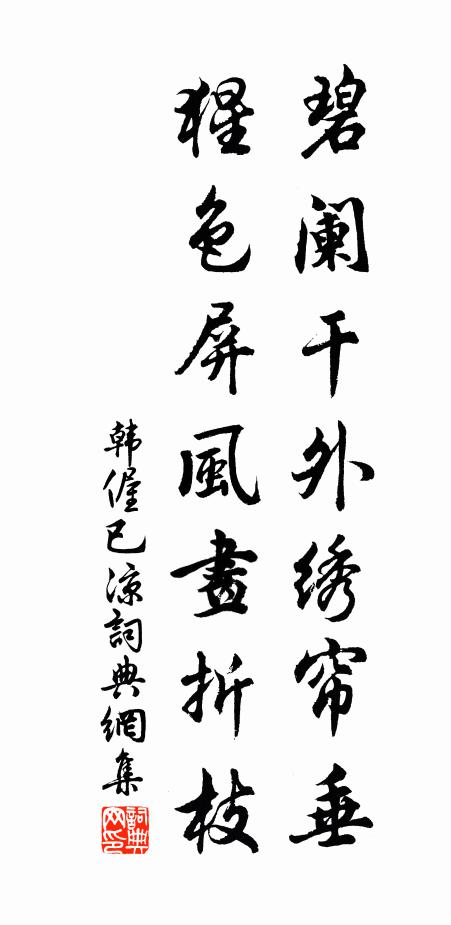 碧阑干外绣帘垂
猩色屏風畫折枝
韩偓已凉詞典網集
詞典网印